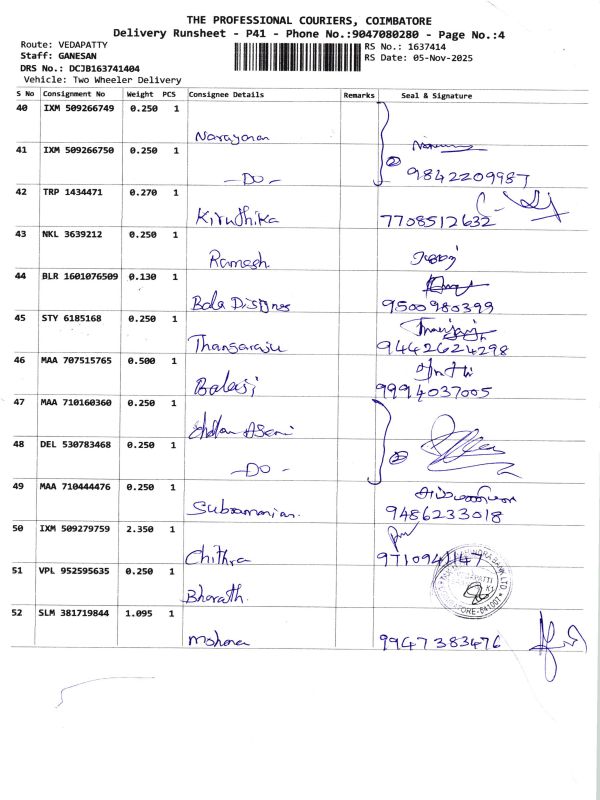 THE PROFESSIONAL COURIERS, COIMBATORE
Delivery Runsheet - P41 - Phone No.:9047080280 - Page No.:4
Route: VEDAPATTY
Staff: GANESAN
DRS No.: DCJB163741404
Vehicle: Two Wheeler Delivery
RS No.: 1637414
RS Date: 05-Nov-2025
S No Consignment No Weight PCS Consignee Details Remarks Seal & Signature
40 IXM 509266749 0.250 1
Narayanan
41 IXM 509266750 0.250 1
-Do- 2 9842209987
42 TRP 1434471 0.270 1
Kiruthika 7708512632
43 NKL 3639212 0.250 1
Ramesh
44 BLR 1601076509 0.130 1
Bala 9500980399
45 STY 6185168 0.250 1
Thangaraju 9442624298
46 MAA 707515765 0.500 1
Balaji 9994037005
47 MAA 710160360 0.250 1
48 DEL 530783468 0.250 1
-Do- 2
49 MAA 710444476 0.250 1
Subramanian. 9486233018
50 IXM 509279759 2.350 1
Chithra 9710941147
51 VPL 952595635 0.250 1
Bharath.
52 SLM 381719844 1.095 1
Mohana 9947383476